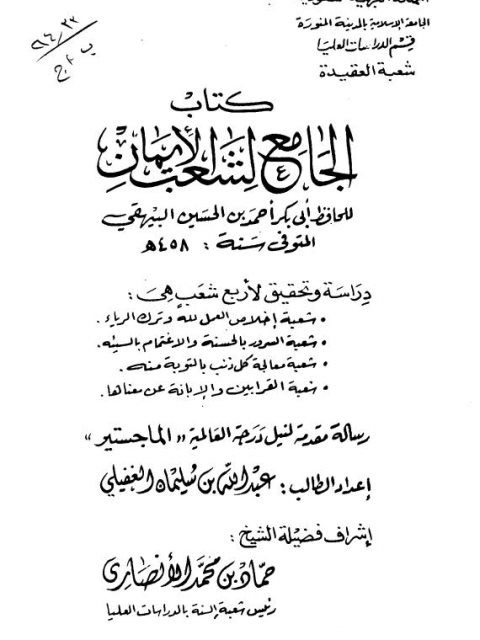 الجامعة الإسلامية بالمدينة المنورة
قسم الدراسات العليا
شعبة العقيدة
كتاب
الجامع لشعب الإيمان
للحافظ أبي بكر أحمد بن الحسين البيهقي
المتوفى سنة : ٤٥٨ هـ
دراسة وتحقيق لأربع شعب هي :
• شعبة إخلاص العمل لله وترك الرياء .
• شعبة السرور بالحسنة والاغتمام بالسيئه .
• شعبة معالجة كل ذنب بالتوبة منه .
• شعبة القرابين والإبانة عن معناها .
رسالة مقدمة لنيل درجة العالمية « الماجستير »
إعداد الطالب : عبدالله بن سليمان الغفيلي
إشراف فضيلة الشيخ :
حماد بن محمد الأنصاري
رئيس شعبة السنة بالدراسات العليا